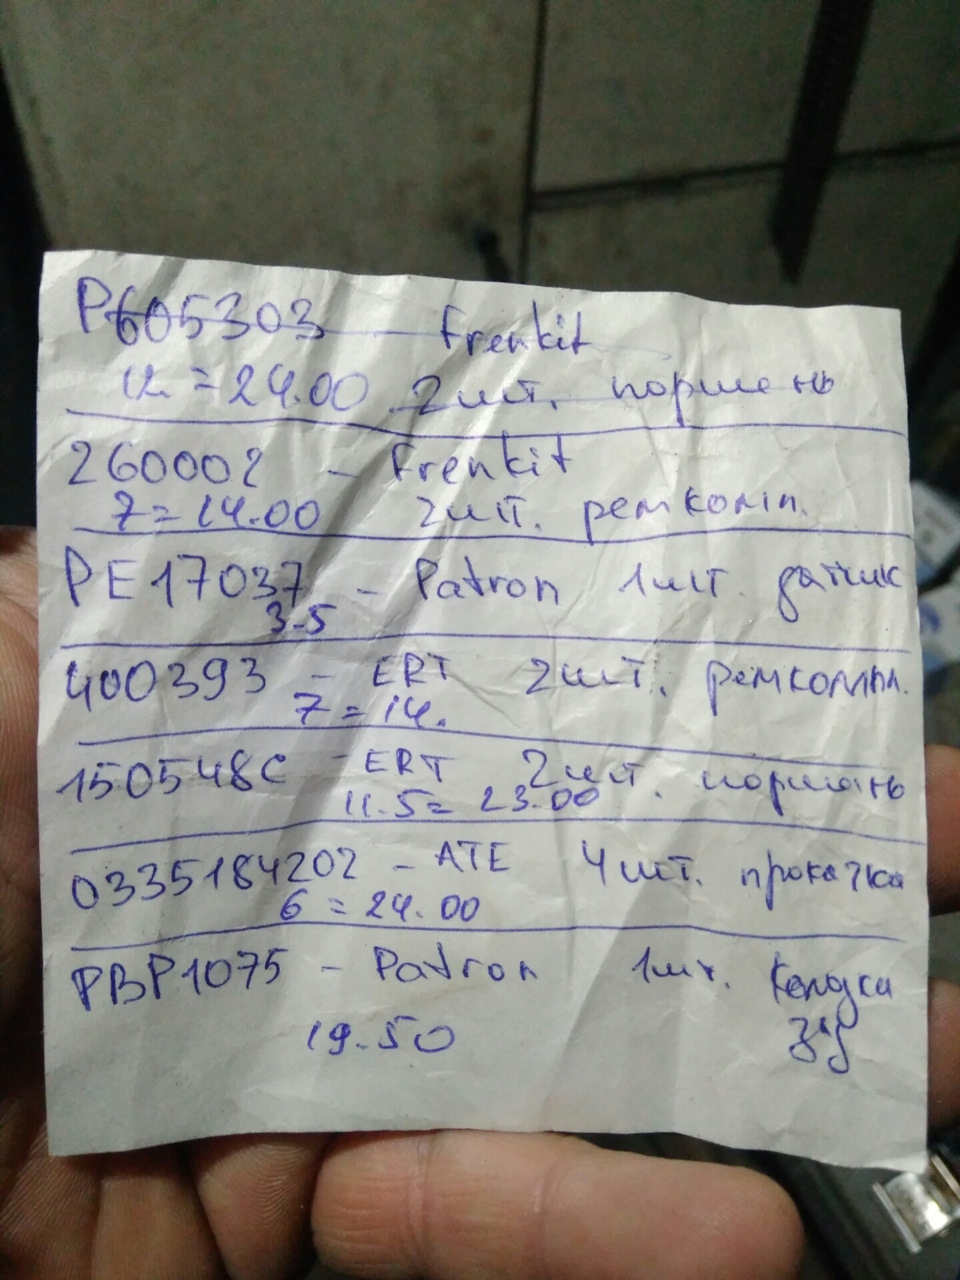 P605303 – Frenkit
12 = 24.00 2шт. поршень
260002 – Frenkit
7 = 14.00 2шт. ремкомп.
PE17037 – Patron 1шт. датчик
3.5
400393 – ERT 2шт. ремкомпл.
7 = 14.
150548C – ERT 2шт. поршень
11.5 = 23.00
0335184202 – ATE 4шт. прокачка
6 = 24.00
PBP1075 – Patron 1шт. Колодки
19.50